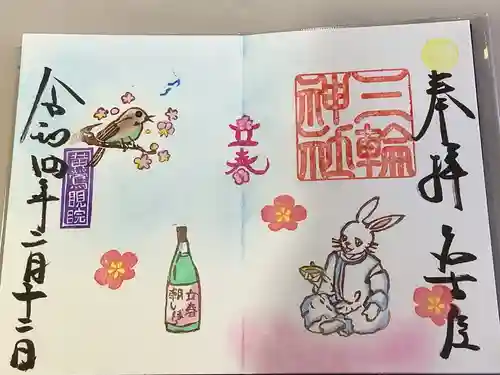 奉拝 名古屋
三輪
神社
立春
立春
朝しぼ
令和四年二月十二日